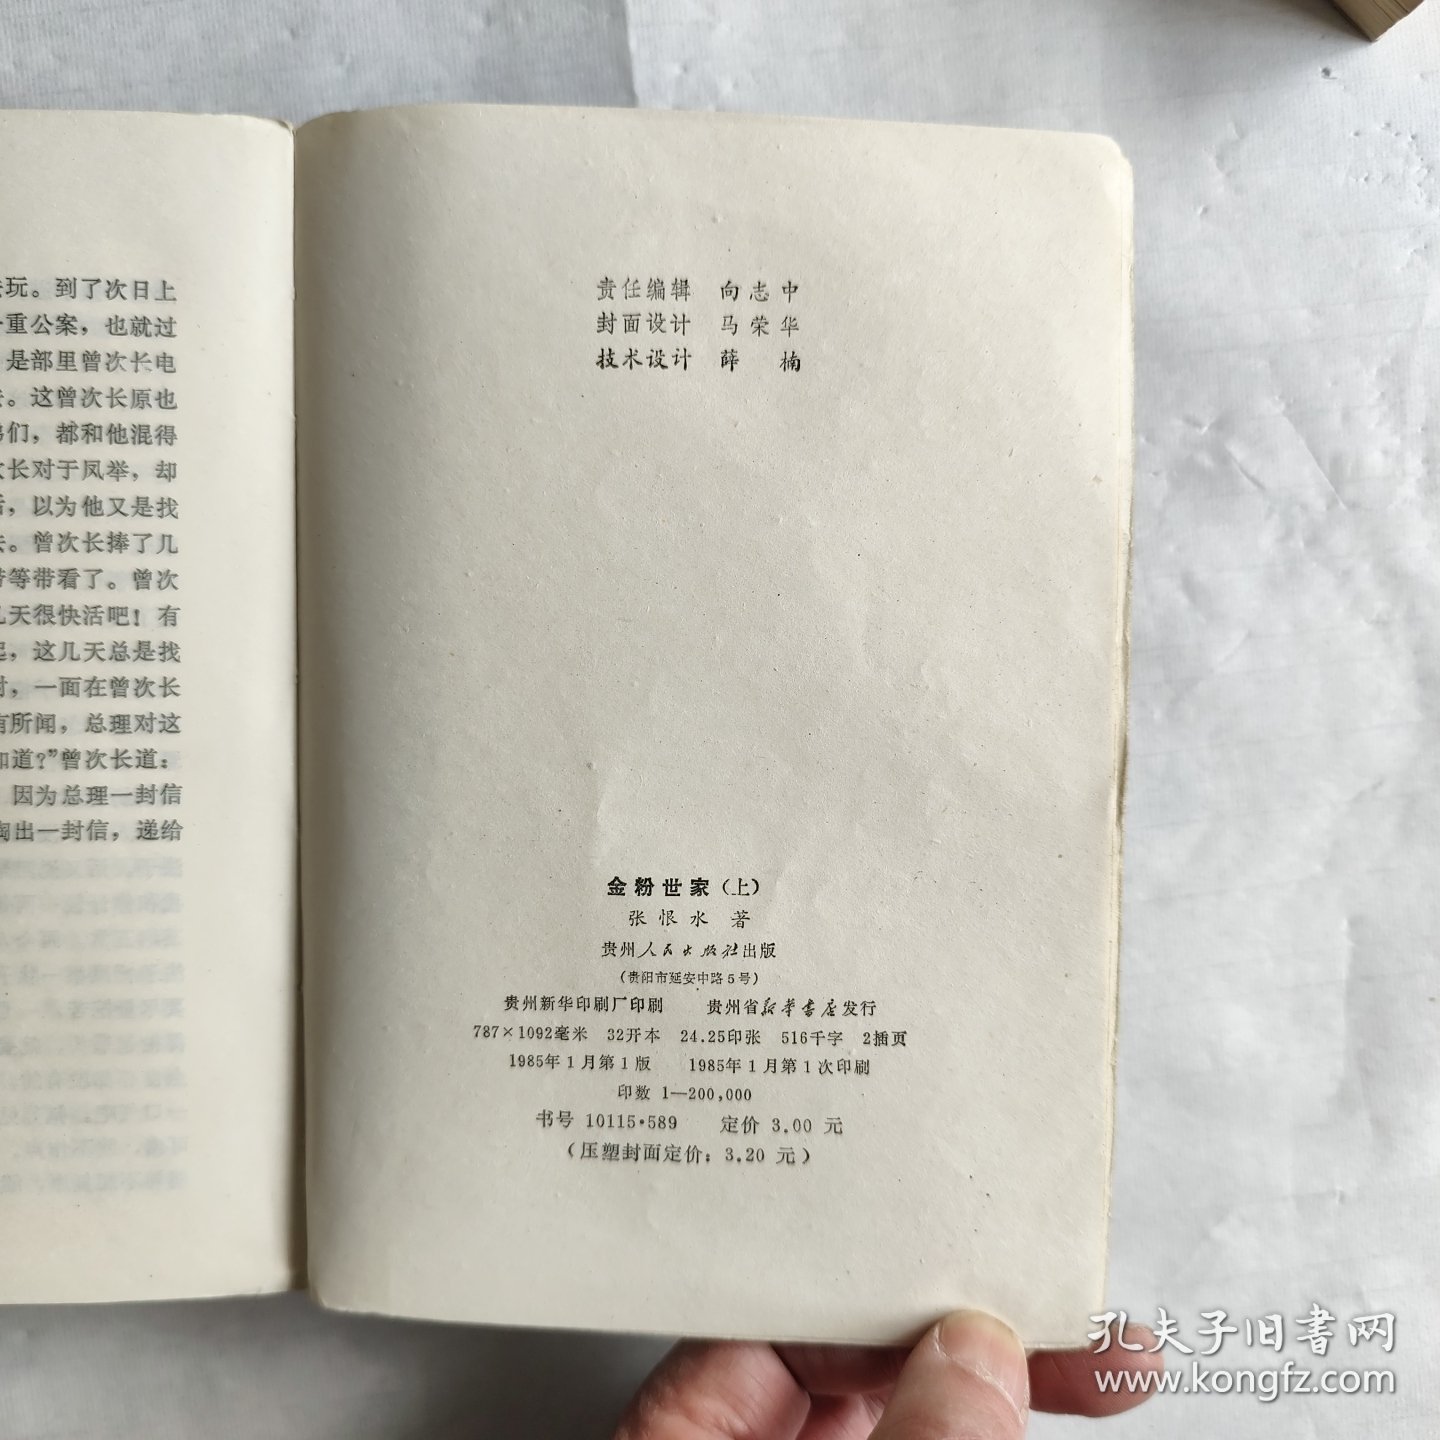 玩。到了次日上
重公案，也就过
是部里曾次长电
。这曾次长原也
们，都和他混得
长对于凤举，却
，以为他又是找
。曾次长捧了几
等带看了。曾次
天很快活吧！有
，这几天总是找
，一面在曾次长
所闻，总理对这
知道？”曾次长道：
因为总理一封信
掏出一封信，递给
责任编辑 向志中
封面设计 马荣华
技术设计 薛 楠
金粉世家（上）
张恨水 著
贵州人民出版社出版
（贵阳市延安中路5号）
贵州新华印刷厂印刷 贵州省新华书店发行
787×1092毫米 32开本 24.25印张 516千字 2插页
1985年1月第1版 1985年1月第1次印刷
印数 1—200,000
书号 10115·589 定价 3.00 元
（压塑封面定价：3.20 元）
孔夫子旧书网
www.kongfz.com